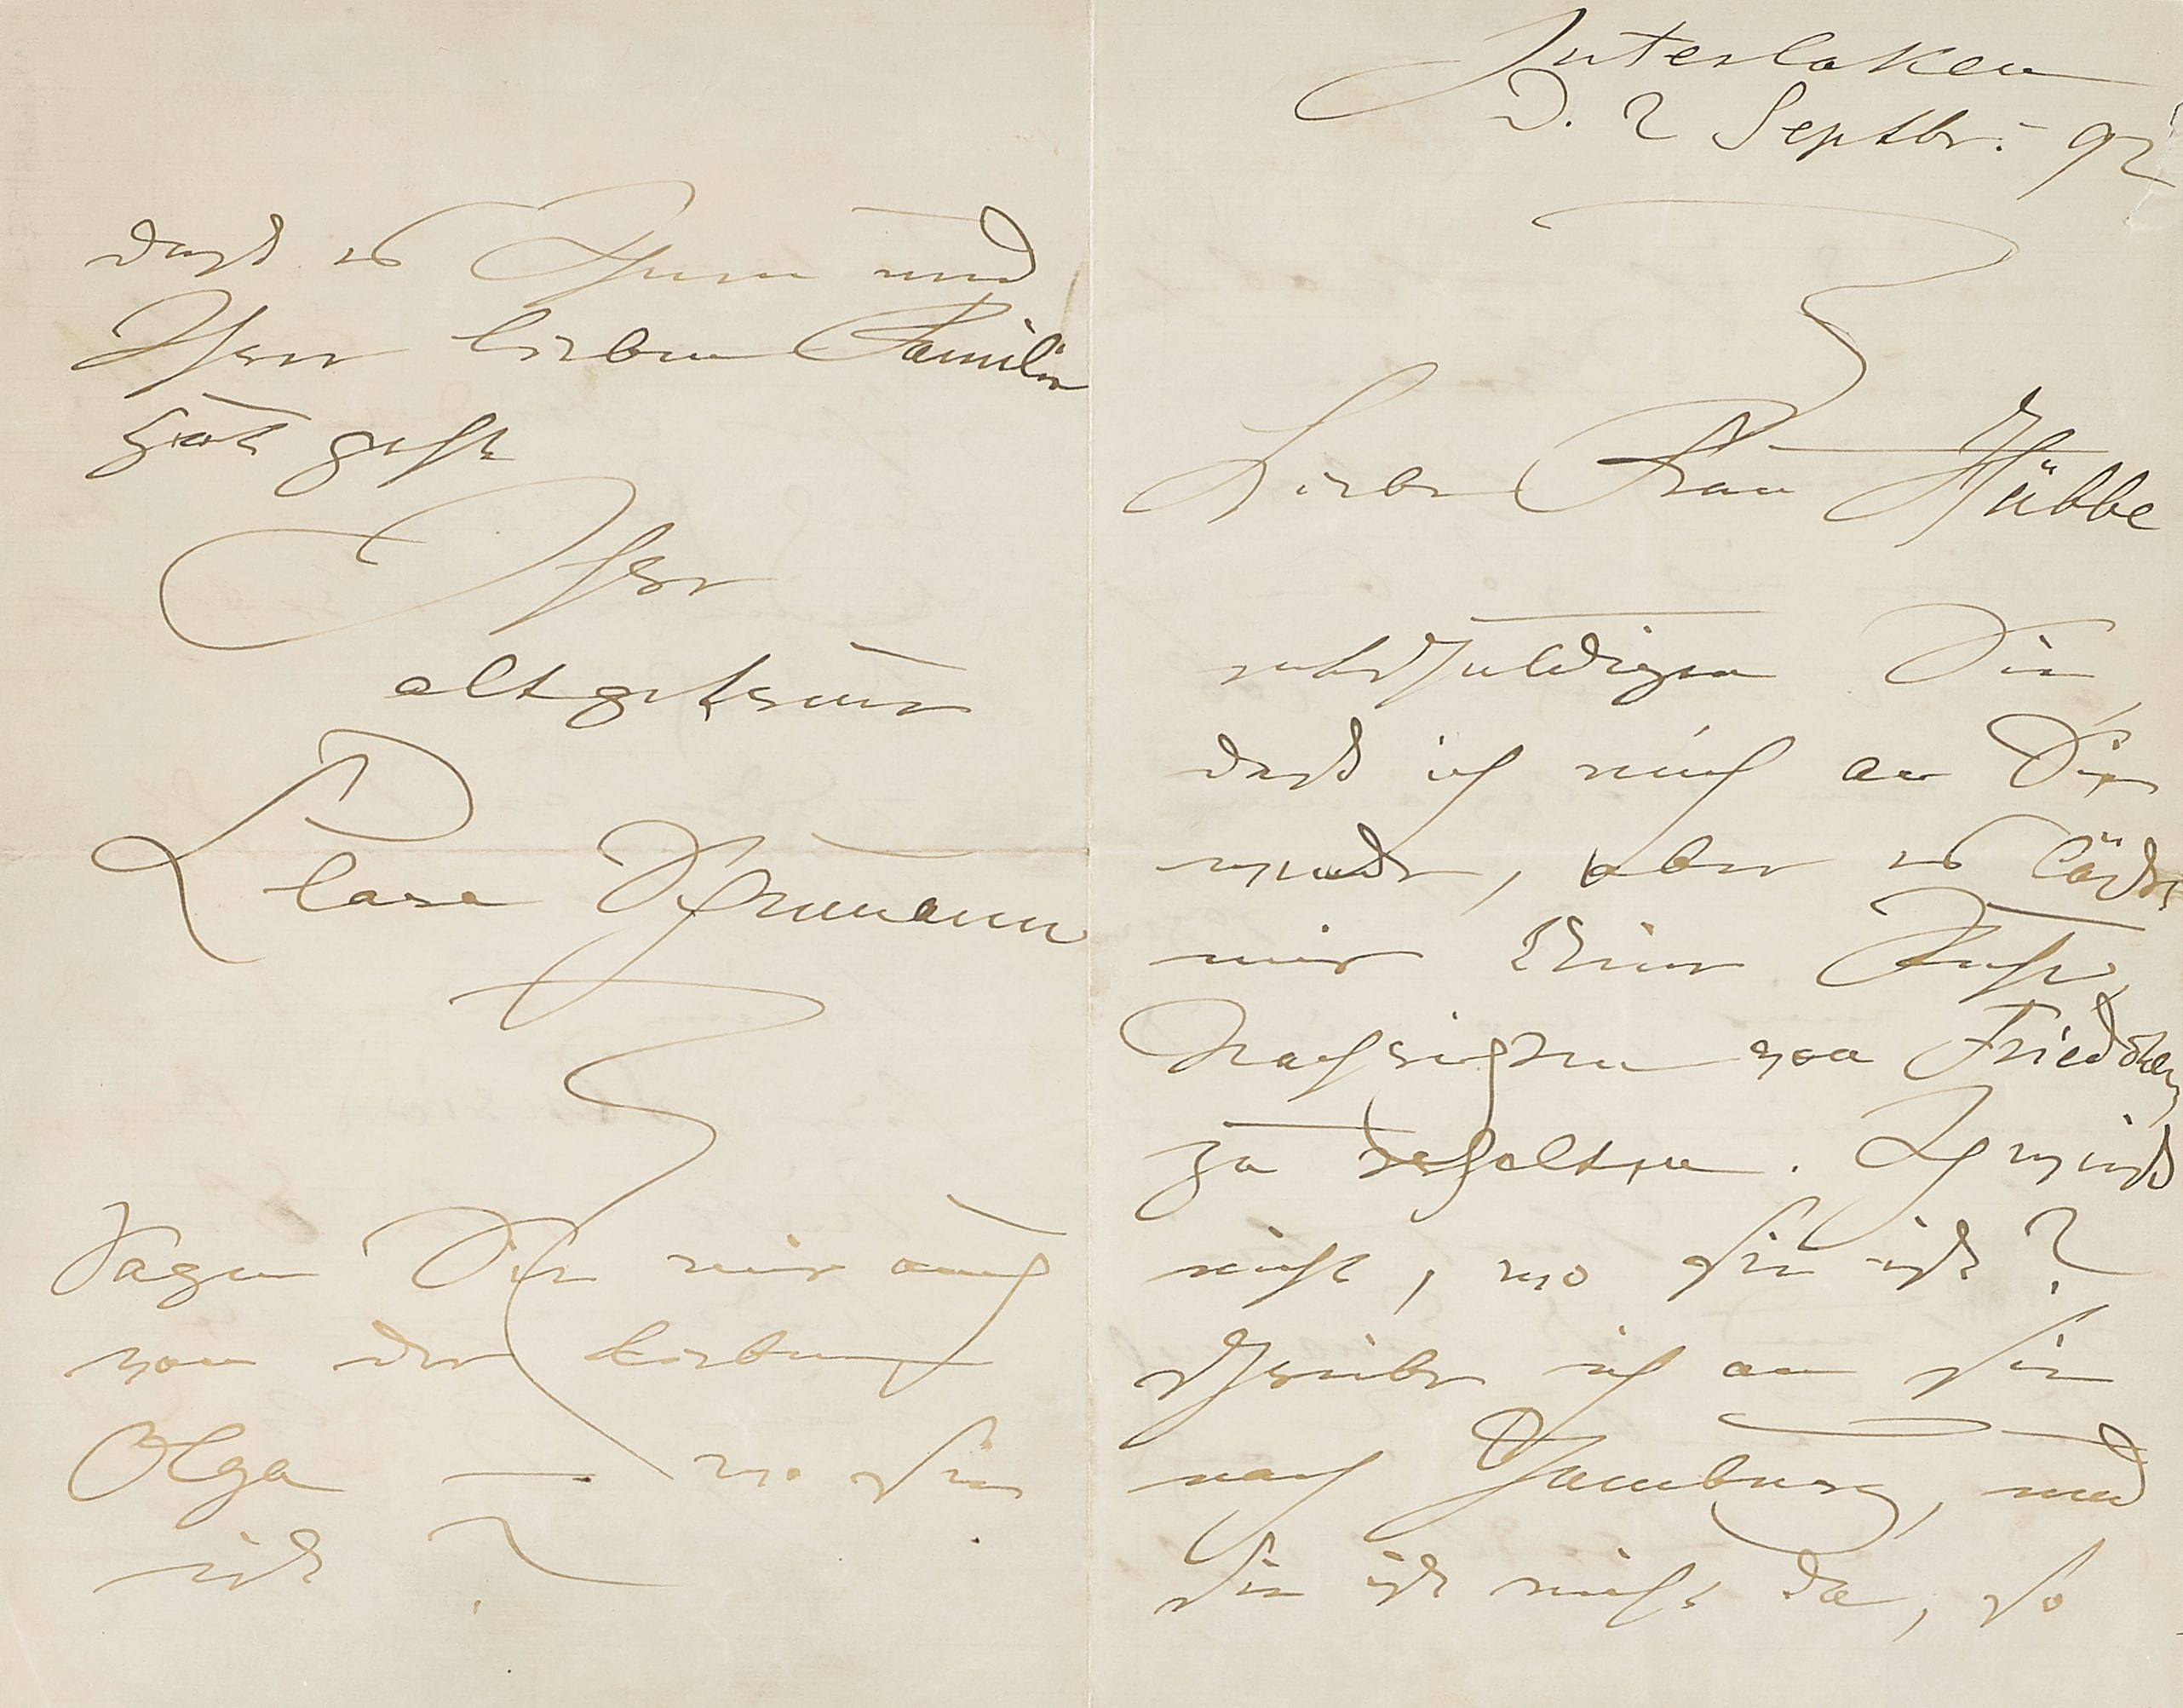 Interlaken
D. 2 Septbr. 92
Liebe Frau Hübbe
entschuldigen Sie,
daß ich mich an Sie
wende, aber es läßt
mir keine Ruhe,
Nachrichten von Friedchen
zu erhalten. Ich weiß
nicht, wo sie ist?
schreibe ich an sie
nach Hamburg, und
sie ist nicht da, so
daß es Ihnen und
Ihrer lieben Familie
gut geht
Ihre
altgetreue
Clara Schumann
Sagen Sie mir auch
von der lieben
Olga — wo sie
ist?